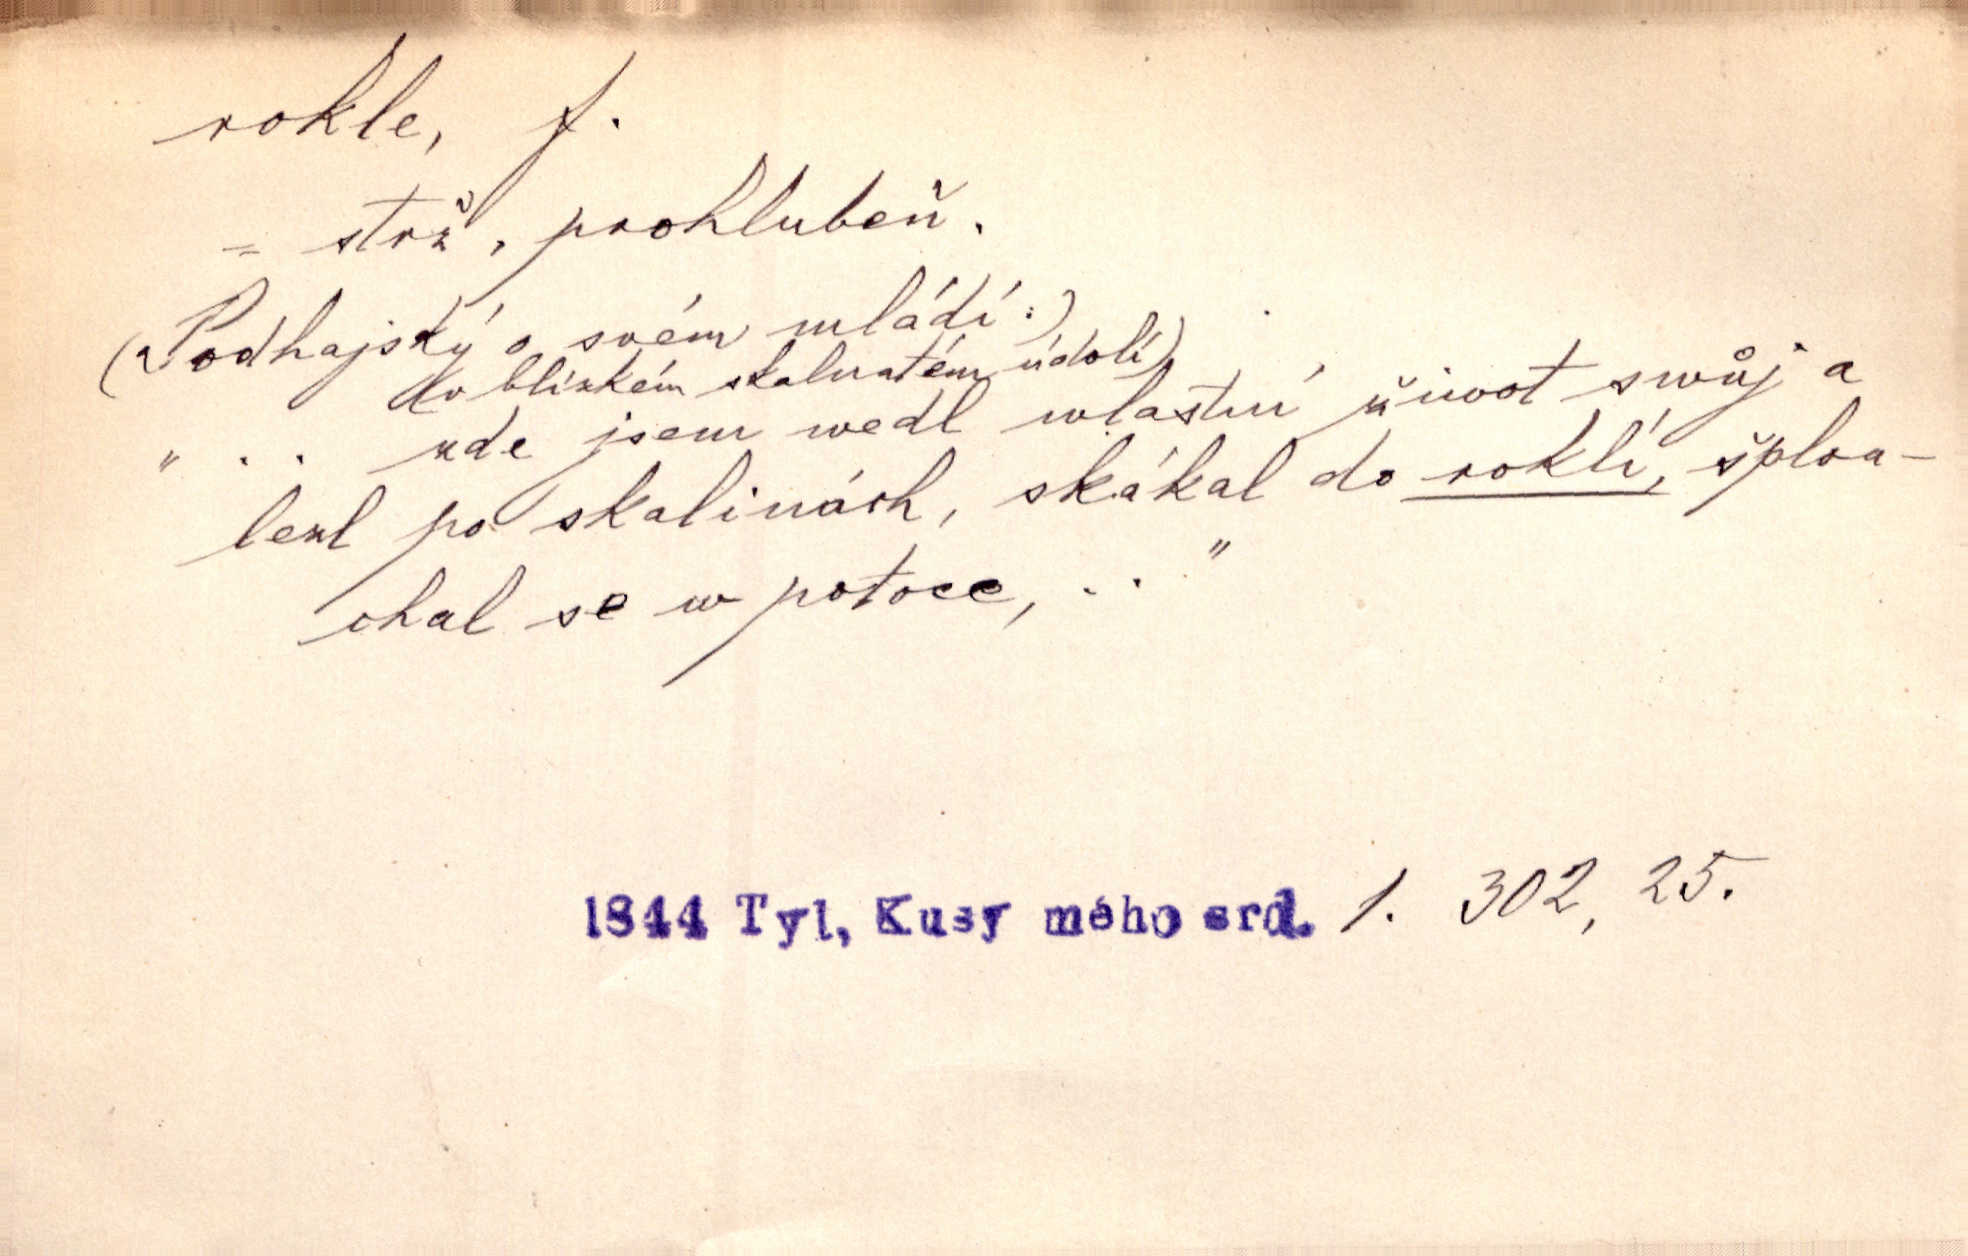 rokle, f.
= strž, prohlubeň.
(Podhajský o svém mládí:)
(v blízkém skalnatém údolí)
" . . zde jsem wedl wlastní žiwot swůj a
lezl po skalinách, skákal do roklí, šplou-
chal se w potoce, . . "
1844 Tyl, Kusy mého srd. 1. 302, 25.